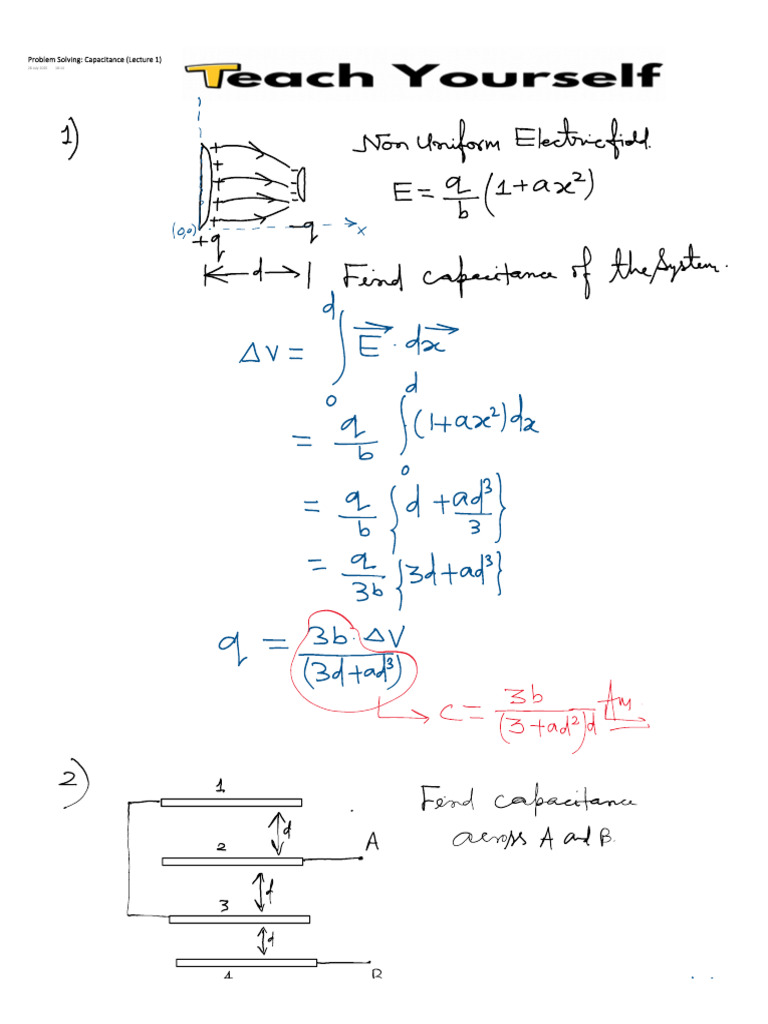 Problem Solving: Capacitance (Lecture 1)
Teach Yourself
1)
Non Uniform Electric field.
E = q/b (1+ax²)
+ + + + +
(0,0)
x
+q
-q
d
Find capacitance of the System.
ΔV = ∫₀ᵈ E⃗ · dx⃗
= q/b ∫₀ᵈ (1+ax²)dx
= q/b {d + ad³/3}
= q/3b {3d+ad³}
q = 3b·ΔV/(3d+ad³)
C = 3b/(3+ad²)d Ans
2)
1
d
2
A
d
3
d
B
Find capacitance
across A and B.